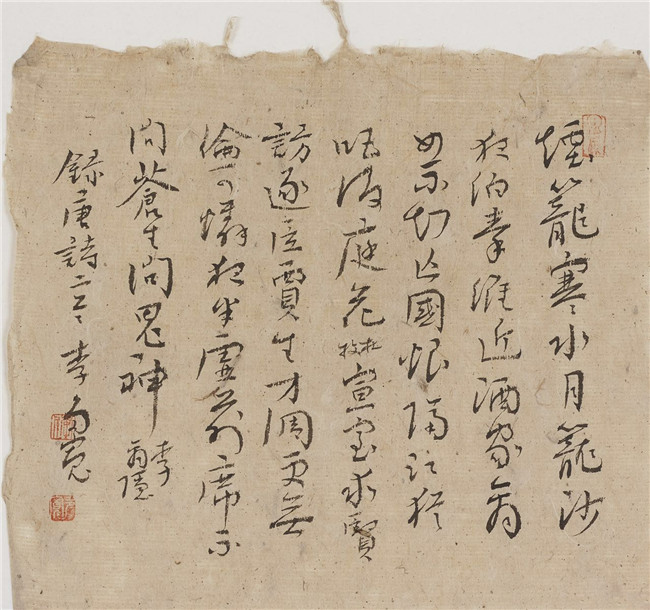 煙籠寒水月籠沙
夜泊秦淮近酒家商
女不知亡國恨隔江猶
唱後庭花 杜牧 宣室求賢
訪逐臣賈生才調更無
倫可憐夜半虛前席不
問蒼生問鬼神 李商隱
錄唐詩二首 李